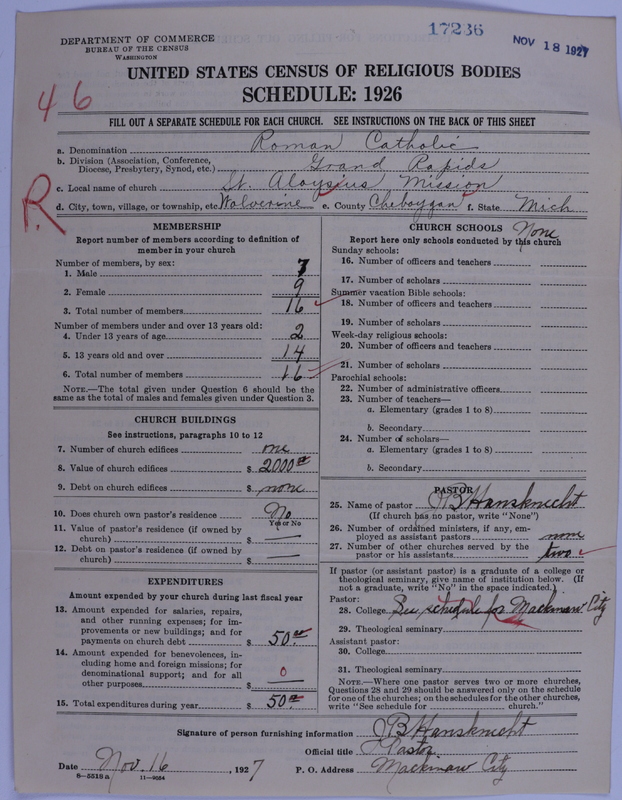 17236
NOV 18 1927
DEPARTMENT OF COMMERCE
BUREAU OF THE CENSUS
WASHINGTON
UNITED STATES CENSUS OF RELIGIOUS BODIES
SCHEDULE: 1926
46
FILL OUT A SEPARATE SCHEDULE FOR EACH CHURCH. SEE INSTRUCTIONS ON THE BACK OF THIS SHEET
a. Denomination Roman Catholic
b. Division (Association, Conference, Diocese, Presbytery, Synod, etc.) Grand Rapids
c. Local name of church St. Aloysius Mission
R
d. City, town, village, or township, etc. Wolverine e. County Cheboygan f. State Mich
MEMBERSHIP
Report number of members according to definition of
member in your church
Number of members, by sex:
1. Male 7
2. Female 9
3. Total number of members 16
Number of members under and over 13 years old:
4. Under 13 years of age 2
5. 13 years old and over 14
6. Total number of members 16
NOTE.—The total given under Question 6 should be the
same as the total of males and females given under Question 3.
CHURCH BUILDINGS
See instructions, paragraphs 10 to 12
7. Number of church edifices one
8. Value of church edifices $ 2000 00
9. Debt on church edifices $ none
10. Does church own pastor's residence No
Yes or No
11. Value of pastor's residence (if owned by
church) $ —
12. Debt on pastor's residence (if owned by
church) $ —
EXPENDITURES
Amount expended by your church during last fiscal year
13. Amount expended for salaries, repairs,
and other running expenses; for im-
provements or new buildings; and for
payments on church debt $ 50.00
14. Amount expended for benevolences, in-
cluding home and foreign missions; for
denominational support; and for all
other purposes $ 0
15. Total expenditures during year $ 50.00
CHURCH SCHOOLS None
Report here only schools conducted by this church
Sunday schools:
16. Number of officers and teachers
17. Number of scholars
Summer vacation Bible schools:
18. Number of officers and teachers
19. Number of scholars
Week-day religious schools:
20. Number of officers and teachers
21. Number of scholars
Parochial schools:
22. Number of administrative officers
23. Number of teachers—
a. Elementary (grades 1 to 8)
b. Secondary
24. Number of scholars—
a. Elementary (grades 1 to 8)
b. Secondary
PASTOR
25. Name of pastor JB Hansknecht
(If church has no pastor, write "None")
26. Number of ordained ministers, if any, em-
ployed as assistant pastors none
27. Number of other churches served by the
pastor or his assistants two
If pastor (or assistant pastor) is a graduate of a college or
theological seminary, give name of institution below. (If
not a graduate, write "No" in the space indicated.)
Pastor:
28. College See schedule for Mackinaw City
29. Theological seminary
Assistant pastor:
30. College
31. Theological seminary
NOTE.—Where one pastor serves two or more churches,
Questions 28 and 29 should be answered only on the schedule
for one of the churches; on the schedules for the other churches,
write "See schedule for church."
Signature of person furnishing information JB Hansknecht
Official title Pastor
Date Nov. 16, 1927 P. O. Address Mackinaw City
8-5518a 11-9054